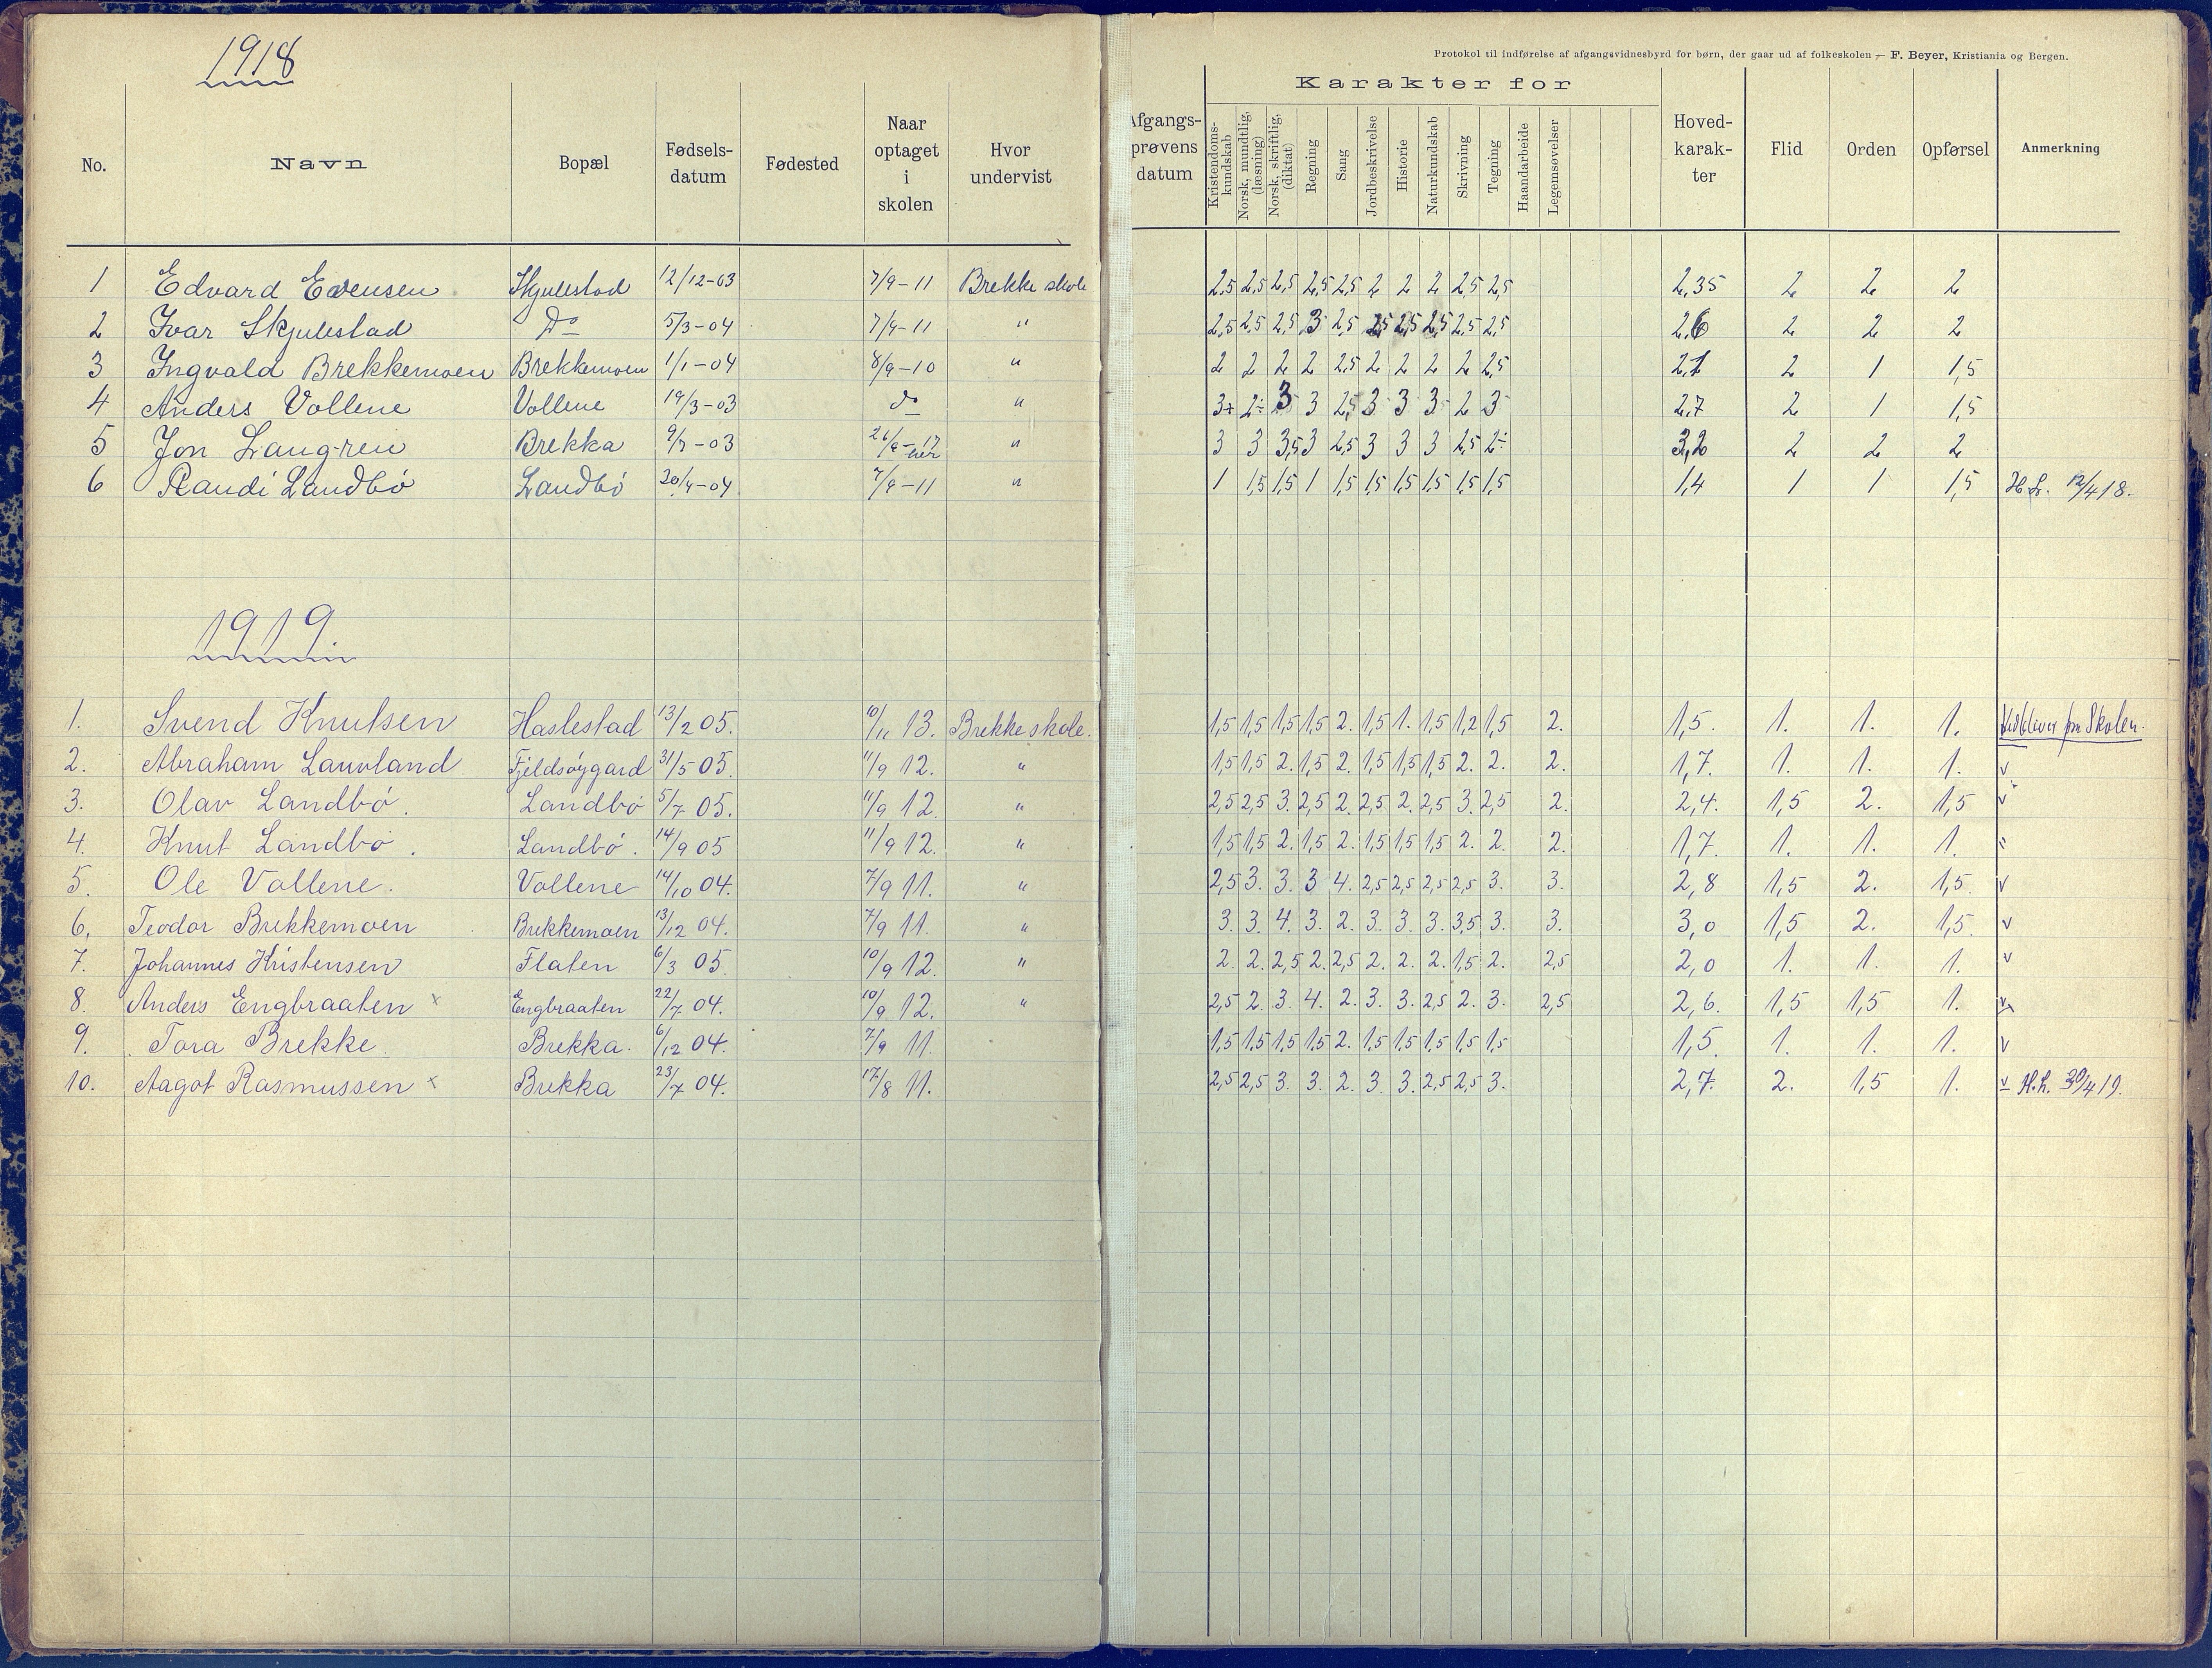 1918
Protokol til indførelse af afgangsvidnesbyrd for børn, der gaar ud af folkeskolen — F. Beyer, Kristiania og Bergen.
No. Navn Bopæl Fødsels-datum Fødested Naar optaget i skolen Hvor undervist Afgangs-prøvens datum Karakter for Kristendoms-kundskab Norsk, mundtlig, (læsning) Norsk, skriftlig, (diktat) Regning Sang Jordbeskrivelse Historie Naturkundskab Skrivning Tegning Haandarbeide Legemsøvelser Hoved-karak-ter Flid Orden Opførsel Anmerkning
1 Edvard Evensen Skjulestad 12/12-03 7/9-11 Brekke skole 2,5 2,5 2,5 2,5 2,5 2 2 2 2,5 2,5 2,35 2 2 2
2 Ivar Skjulestad Do 5/3-04 7/9-11 " 2,5 2,5 2,5 3 2,5 2,5 2,5 2,5 2,5 2,5 2,6 2 2 2
3 Ingvald Brekkemoen Brekkemoen 1/1-04 8/9-10 " 2 2 2 2 2,5 2 2 2 2 2,5 2,1 2 1 1,5
4 Anders Vollene Vollene 19/3-03 do " 3+ 2÷ 3 3 2,5 3 3 3 2 3 2,7 2 1 1,5
5 Jon Langren Brekka 9/7-03 " 3 3 3,5 3 2,5 3 3 3 2,5 2÷ 3,2 2 2 2
6 Randi Landbö Landbö 20/4-04 7/9-11 " 1 1,5 1,5 1 1,5 1,5 1,5 1,5 1,5 1,5 1,4 1 1 1,5 12/4 18.
1919.
1. Svend Knutsen Haslestad 13/2 05. 10/11 13. Brekke skole. 1,5 1,5 1,5 1,5 2. 1,5 1. 1,5 1,2 1,5 2. 1,5. 1. 1. 1. Skolen.
2. Abraham Lauvland Fjeldsøygard 31/5 05. 11/9 12. " 1,5 1,5 2. 1,5 2. 1,5 1,5 1,5 2. 2. 2. 1,7. 1. 1. 1. v
3. Olav Landbö. Landbö 5/7 05. 11/9 12. " 2,5 2,5 3. 2,5 2. 2,5 2. 2,5 3. 2,5 2. 2,4. 1,5 2. 1,5 v
4. Knut Landbö. Landbö. 14/9 05 11/9 12. " 1,5 1,5 2. 1,5 2. 1,5 1,5 1,5 2. 2. 2. 1,7. 1. 1. 1. "
5. Ole Vollene. Vollene 14/10 04. 7/9 11. " 2,5 3. 3. 3 4. 2,5 2,5 2,5 2,5 3. 3. 2,8 1,5 2. 1,5. v
6. Teodor Brekkemoen Brekkemoen 13/12 04. 7/9 11. " 3. 3. 4. 3. 2. 3. 3. 3. 3,5 3. 3. 3,0 1,5 2. 1,5. v
7. Johannes Kristensen Flaten 6/3 05. 10/9 12. " 2. 2. 2,5 2. 2,5 2. 2. 2. 1,5 2. 2,5 2,0 1. 1. 1. v
8. Anders Engbraaten x Engbraaten 22/7 04. 10/9 12. " 2,5 2. 3. 4. 2. 3. 3. 2,5 2. 3. 2,5 2,6. 1,5 1,5 1. v
9. Tora Brekke. Brekka. 6/12 04. 7/9 11. 1,5 1,5 1,5 1,5 2. 1,5 1,5 1,5 1,5 1,5 1,5. 1. 1. 1. v
10. Aagot Rasmussen x Brekka 23/7 04. 17/8 11. 2,5 2,5 3. 3. 2. 3. 3. 2,5 2,5 3. 2,7. 2. 1,5 1. v H.L. 30/4 19.